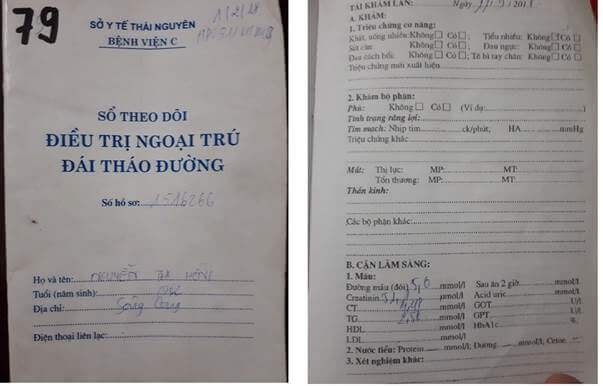 79
SỞ Y TẾ THÁI NGUYÊN
BỆNH VIỆN C
SỔ THEO DÕI
ĐIỀU TRỊ NGOẠI TRÚ
ĐÁI THÁO ĐƯỜNG
Số hồ sơ: 1516266
Họ và tên: NGUYỄN THỊ
Tuổi (năm sinh):
Địa chỉ: Sông Công
Điện thoại liên lạc:
TÁI KHÁM LẦN: Ngày
A. KHÁM:
1. Triệu chứng cơ năng:
Khát, uống nhiều: Không☐ Có☐; Tiểu nhiều: Không☐ Có☐
Sút cân: Không☐ Có☐; Đau ngực: Không☐ Có☐
Đau cách hồi: Không☐ Có☐; Tê bì tay chân: Không☐ Có☐
Triệu chứng mới xuất hiện
2. Khám bộ phận:
Phù: Không☐ Có☐ (Ví dụ: )
Tình trạng răng lợi:
Tim mạch: Nhịp tim ck/phút; HA mmHg
Triệu chứng khác:
Mắt: Thị lực: MP: MT:
Tổn thương: MP: MT:
Thần kinh:
Các bộ phận khác:
B. CẬN LÂM SÀNG:
1. Máu:
Đường máu (đói) 5,0 mmol/l Sau ăn 2 giờ mmol/l
Creatinin mmol/l Acid uric mmol/l
CT mmol/l GOT U/l
TG mmol/l GPT U/l
HDL mmol/l HbA1c
LDL mmol/l
2. Nước tiểu: Protein mmol/l; Đường mmol/l; Cetone
3. Xét nghiệm khác: